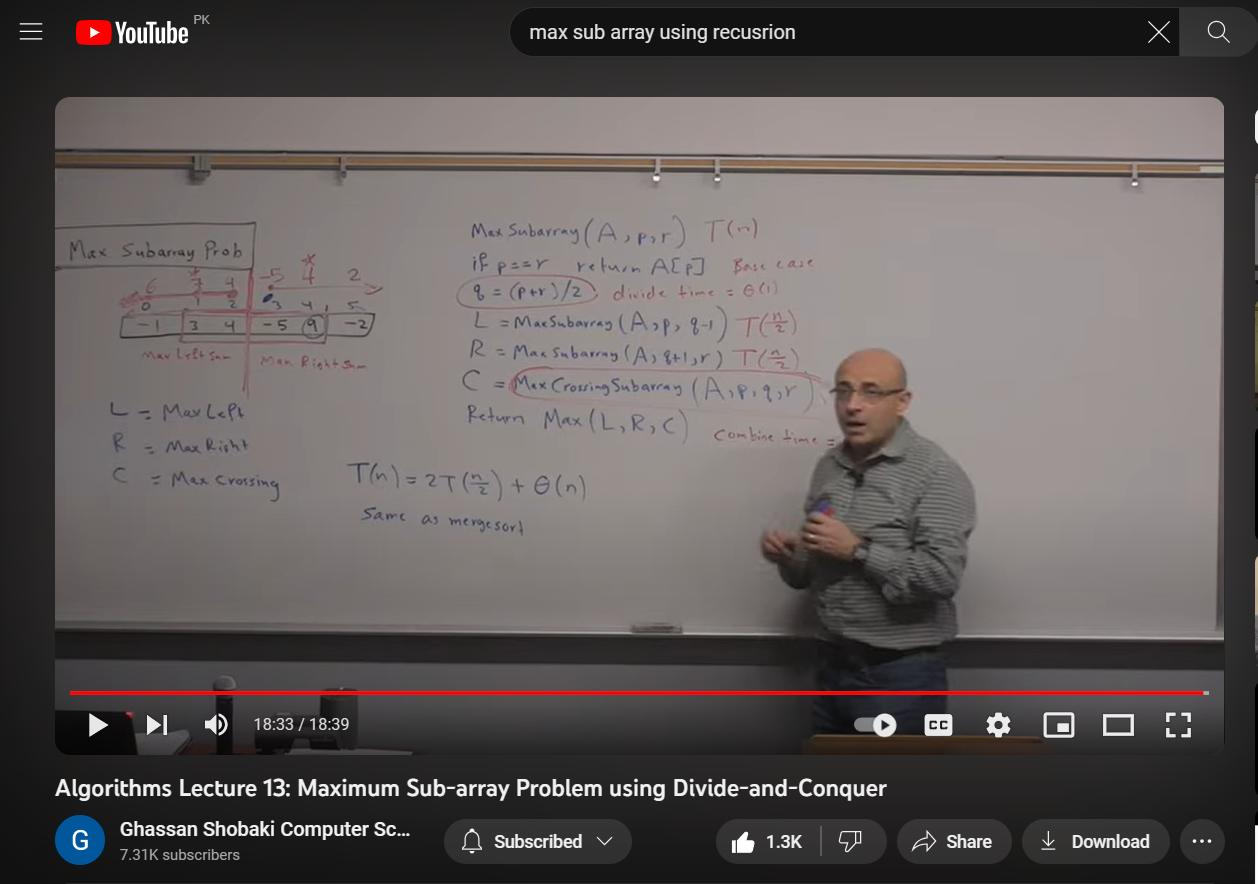 YouTube PK
max sub array using recusrion
Max Subarray Prob
6 7 4 -5 4 2
0 1 2 3 4 5
-1 3 4 -5 9 -2
Max Left Sum Max Right Sum
L = MaxLeft
R = MaxRight
C = MaxCrossing
MaxSubarray(A, p, r) T(n)
if p==r return A[p] Base case
q = (p+r)/2 divide time = θ(1)
L = MaxSubarray(A, p, q-1) T(n/2)
R = MaxSubarray(A, q+1, r) T(n/2)
C = MaxCrossingSubarray(A, p, q, r)
Return Max(L, R, C) Combine time =
T(n) = 2T(n/2) + θ(n)
Same as mergesort
18:33 / 18:39
CC
Algorithms Lecture 13: Maximum Sub-array Problem using Divide-and-Conquer
G
Ghassan Shobaki Computer Sc...
7.31K subscribers
Subscribed
1.3K
Share
Download